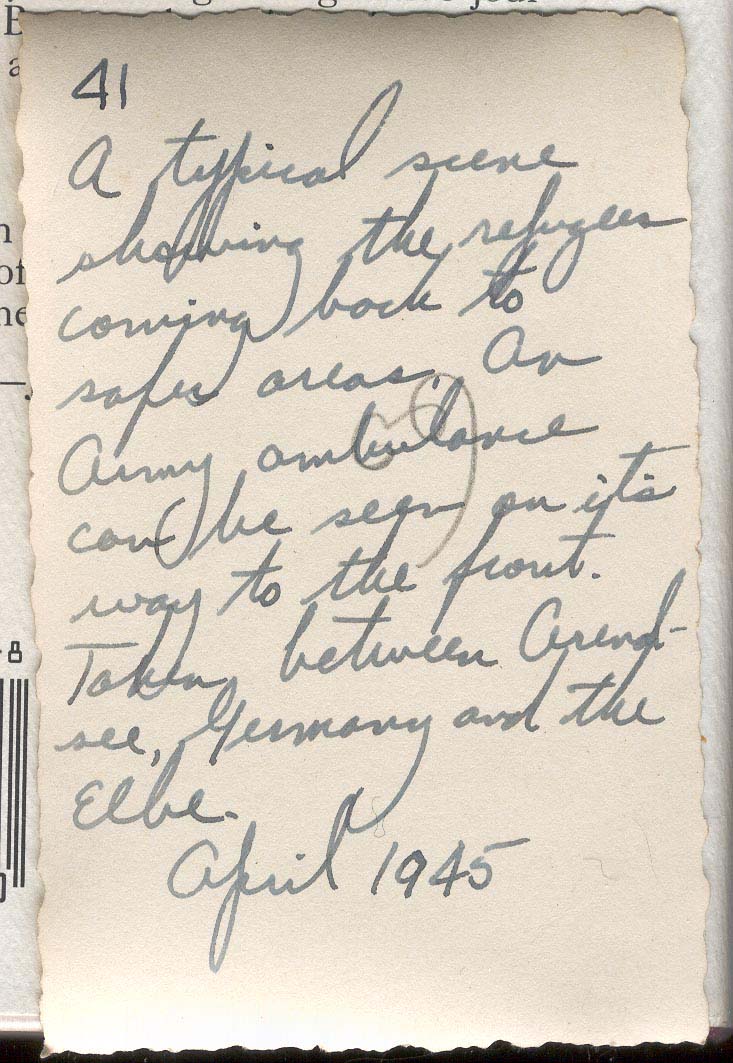 41
A typical scene
showing the refugees
coming back to
safer areas. An
Army ambulance
can be seen on it's
way to the front.
Taken between Arend-
see, Germany and the
Elbe.
April 1945
of
8